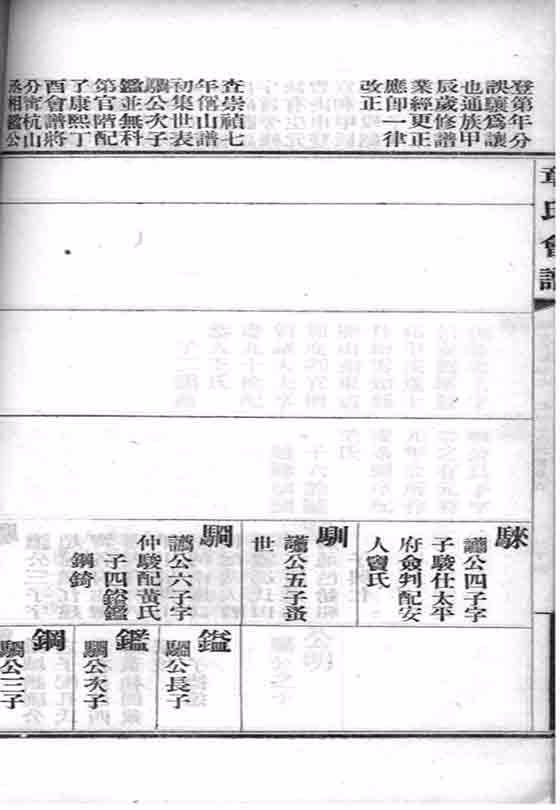 章氏會譜
登第年分
誤驤爲讓
也通族甲
辰歲修譜
業經更正
應卽一律
改正
查崇禎七
年偁山譜
初集世表
騆公次子
鑑並無科
第官階配
了康熙丁
酉會譜將
分甯杭山
丞相鑑公
騋
讁公四子字
子駿仕太平
府僉判配安
人竇氏
馴
讁公五子蚤
世
騆
讁公六子字
仲駿配黃氏
子四鎰鑑
鋼錡
鎰
騆公長子
鑑
騆公次子
鋼
騆公三子